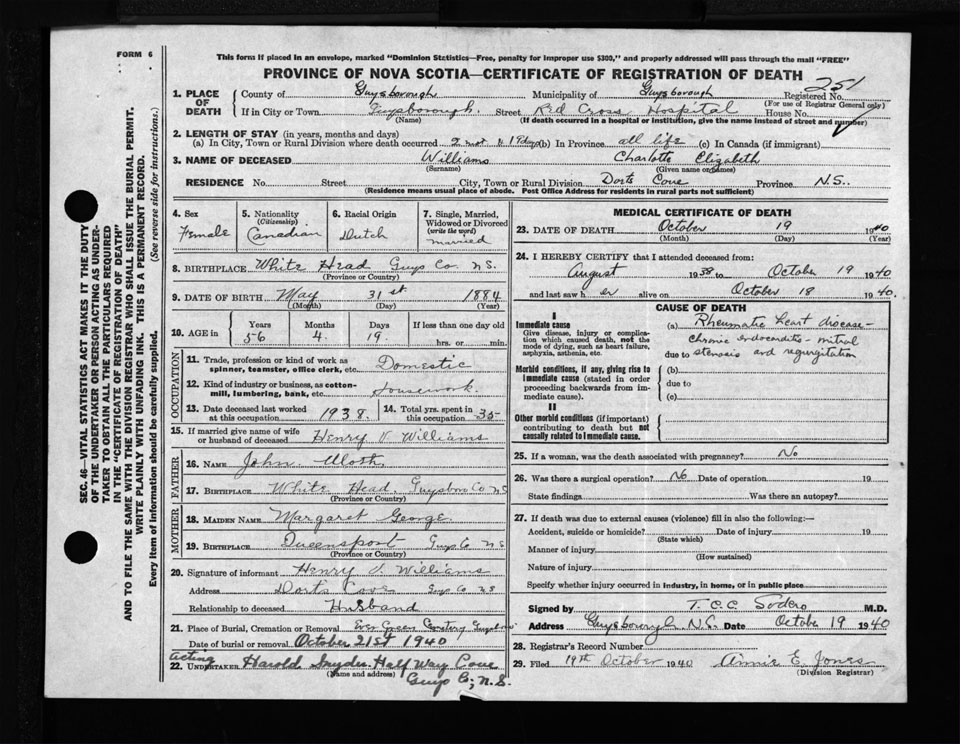 FORM 6
This form if placed in an envelope, marked "Dominion Statistics—Free, penalty for improper use $300," and properly addressed will pass through the mail "FREE"
PROVINCE OF NOVA SCOTIA—CERTIFICATE OF REGISTRATION OF DEATH
251
1. PLACE OF DEATH
County of Guysborough Municipality of Guysborough Registered No.
(For use of Registrar General only)
If in City or Town Guysborough. Street Red Cross Hospital House No.
(Name) (If death occurred in a hospital or institution, give the name instead of street and number)
2. LENGTH OF STAY (in years, months and days)
(a) In City, Town or Rural Division where death occurred 2 (b) In Province all life (c) In Canada (if immigrant)
3. NAME OF DECEASED Williams Charlotte Elizabeth
(Surname) (Given name or names)
RESIDENCE No. Street City, Town or Rural Division Dorts Cove Province N.S..
(Residence means usual place of abode. Post Office Address for residents in rural parts not sufficient)
4. Sex Female
5. Nationality (Citizenship) Canadian
6. Racial Origin Dutch
7. Single, Married, Widowed or Divorced (write the word) married
8. BIRTHPLACE White Head Guys Co. N.S.
(Province or Country)
9. DATE OF BIRTH May 31st 1884
(Month) (Day) (Year)
10. AGE in Years 56 Months 4. Days 19. If less than one day old hrs. or min.
OCCUPATION
11. Trade, profession or kind of work as spinner, teamster, office clerk, etc. Domestic
12. Kind of industry or business, as cotton-mill, lumbering, bank, etc. Housework.
13. Date deceased last worked at this occupation 1938. 14. Total yrs. spent in this occupation 35
15. If married give name of wife or husband of deceased Henry V. Williams
FATHER
16. NAME John
17. BIRTHPLACE White Head. Guysboro Co NS
(Province or Country)
MOTHER
18. MAIDEN NAME Margaret George
19. BIRTHPLACE Queensport Guys Co NS
(Province or Country)
20. Signature of informant Henry V. Williams
Address Dorts Cove Guys Co NS
Relationship to deceased Husband
21. Place of Burial, Cremation or Removal Ever Green Cemetery
Date of burial or removal October 21st 1940
Acting
22. UNDERTAKER Harold Snyder. Half Way Cove
(Name and address)
Guys Co; N.S.
MEDICAL CERTIFICATE OF DEATH
23. DATE OF DEATH October 19 1940
(Month) (Day) (Year)
24. I HEREBY CERTIFY that I attended deceased from:
August 1938 to October 19 1940
and last saw her alive on October 18 1940.
CAUSE OF DEATH
I
Immediate cause
Give disease, injury or complication which caused death, not the mode of dying, such as heart failure, asphyxia, asthenia, etc.
(a) Rheumatic heart disease—
chronic endocarditis - mitral
due to stenosis and regurgitation
Morbid conditions, if any, giving rise to immediate cause (stated in order proceeding backwards from immediate cause).
(b)
due to
(c)
II
Other morbid conditions (if important) contributing to death but not causally related to immediate cause.
25. If a woman, was the death associated with pregnancy? No
26. Was there a surgical operation? No Date of operation 19
State findings Was there an autopsy?
27. If death was due to external causes (violence) fill in also the following:—
Accident, suicide or homicide? Date of injury 19
(State which)
Manner of injury
(How sustained)
Nature of injury
Specify whether injury occurred in industry, in home, or in public place
Signed by T.C.C. Sodero M.D.
Address Guysborough N.S. Date October 19 1940
28. Registrar's Record Number
29. Filed 19th October 1940 Annie E. Jones
(Division Registrar)
SEC. 46—VITAL STATISTICS ACT MAKES IT THE DUTY
OF THE UNDERTAKER OR PERSON ACTING AS UNDER-
TAKER TO OBTAIN ALL THE PARTICULARS REQUIRED
IN THE "CERTIFICATE OF REGISTRATION OF DEATH"
AND TO FILE THE SAME WITH THE DIVISION REGISTRAR WHO SHALL ISSUE THE BURIAL PERMIT.
WRITE PLAINLY WITH UNFADING INK. THIS IS A PERMANENT RECORD.
Every item of information should be carefully supplied. (See reverse side for instructions.)